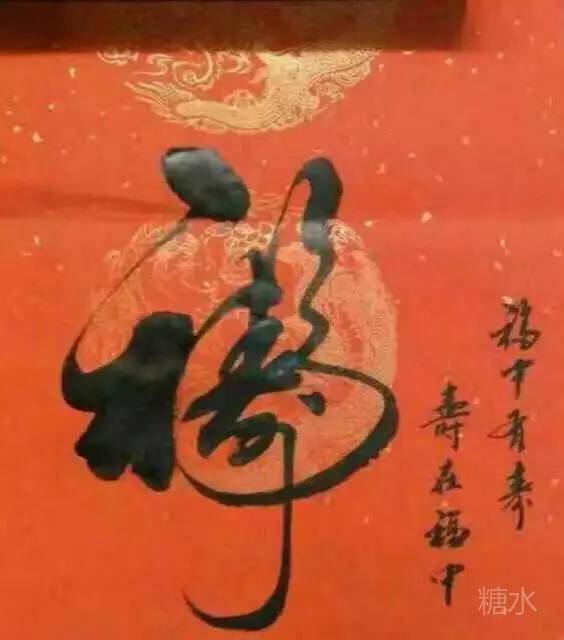 福
福中有寿
寿在福中
糖水